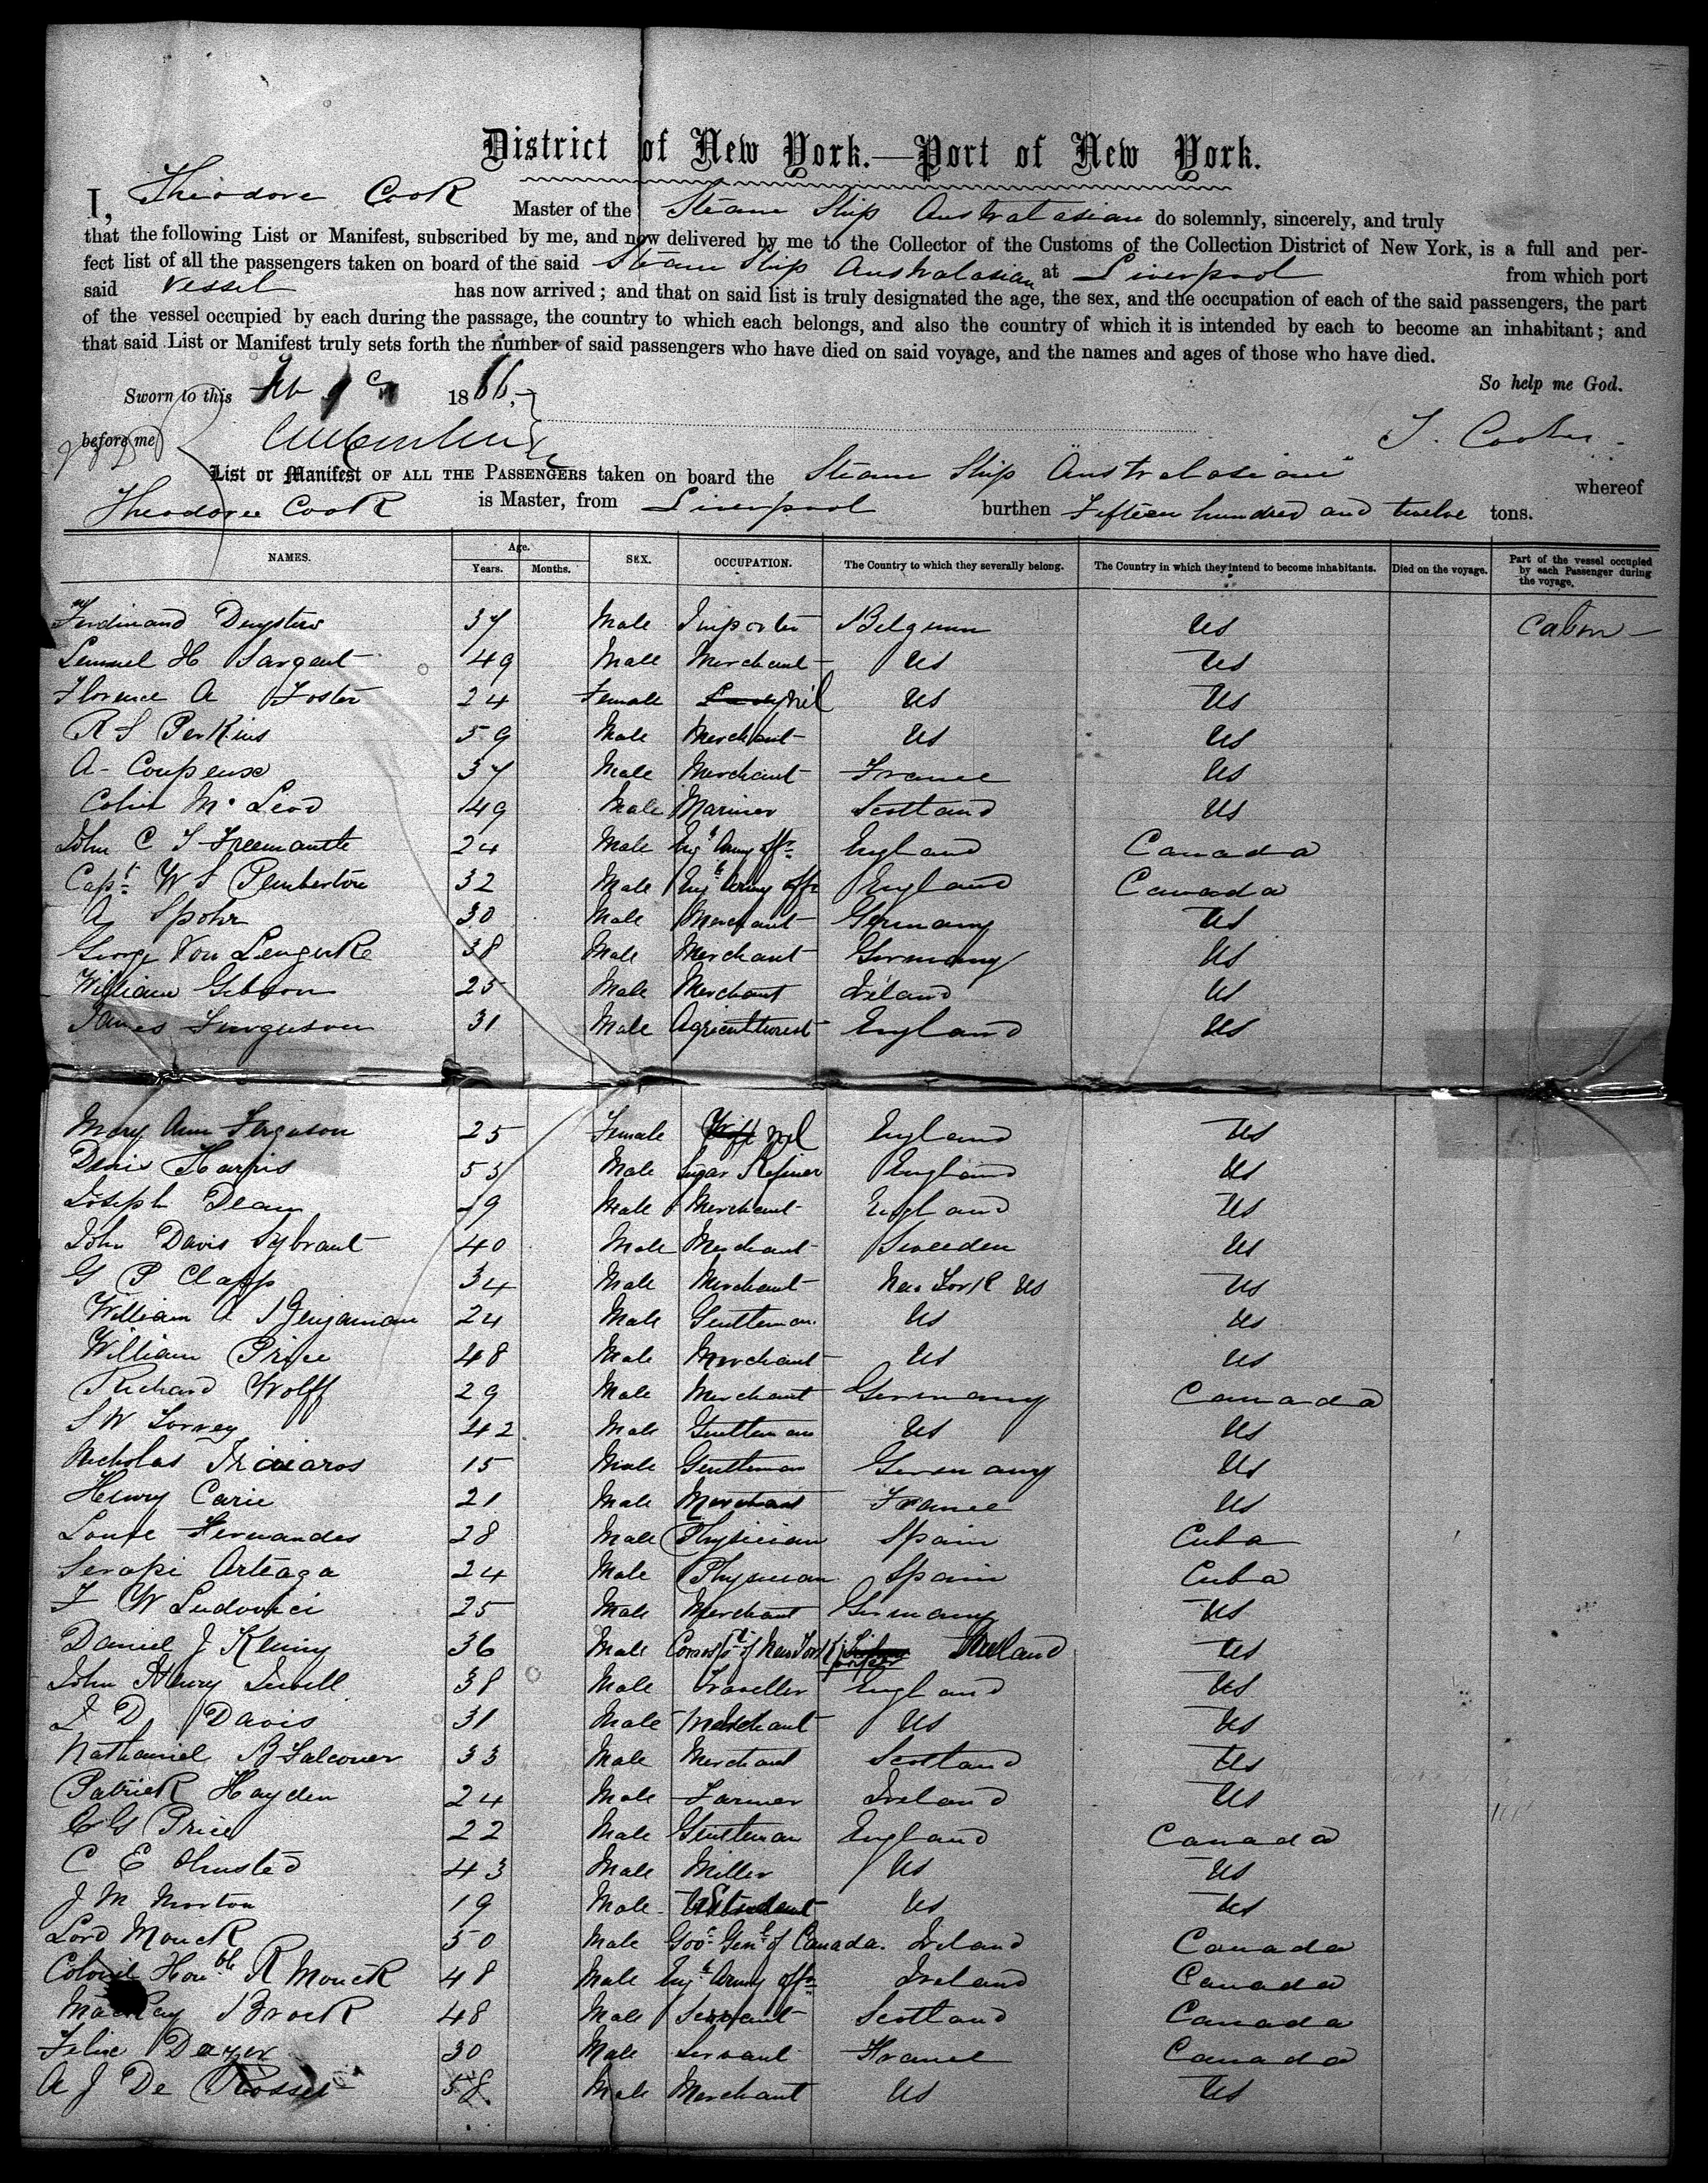 District of New York.—Port of New York.
I, Theodore Cook Master of the Steam Ship Australasian do solemnly, sincerely, and truly
that the following List or Manifest, subscribed by me, and now delivered by me to the Collector of the Customs of the Collection District of New York, is a full and per-
fect list of all the passengers taken on board of the said Steam Ship Australasian at Liverpool from which port
said Vessel has now arrived; and that on said list is truly designated the age, the sex, and the occupation of each of the said passengers, the part
of the vessel occupied by each during the passage, the country to which each belongs, and also the country of which it is intended by each to become an inhabitant; and
that said List or Manifest truly sets forth the number of said passengers who have died on said voyage, and the names and ages of those who have died.
So help me God.
Sworn to this Feb 1866,
before me T. Cook
List or Manifest OF ALL THE PASSENGERS taken on board the Steam Ship Australasian whereof
Theodore Cook is Master, from Liverpool burthen Fifteen hundred and twelve tons.
NAMES. Age. Years. Months. SEX. OCCUPATION. The Country to which they severally belong. The Country in which they intend to become inhabitants. Died on the voyage. Part of the vessel occupied by each Passenger during the voyage.
Ferdinand 37 Male Importer Belgium US Cabin
Lemuel H Sargent 49 Male Merchant US US
Florence A Foster 24 Female nil US US
R S Perkins 59 Male Merchant US US
A. Coupeux 37 Male Merchant France US
Colin Mc Leod 49 Male Mariner Scotland US
John C T Freemantle 24 Male Engh Army offr England Canada
Capt W S Pemberton 32 Male Engh Army offr England Canada
A Spohr 30 Male Merchant Germany US
George Von Lengerke 38 Male Merchant Germany US
William Gibson 25 Male Merchant Ireland US
James Ferguson 31 Male Agriculturist England US
Mary Ann Ferguson 25 Female Wife nil England US
Denis Harris 55 Male Sugar Refiner England US
Joseph Dean 29 Male Merchant England US
John Davis Sybrant 40 Male Merchant Sweeden US
G P Clapp 34 Male Merchant New York US US
William A Benjamian 24 Male Gentleman US US
William Price 48 Male Merchant US US
Richard Wolff 29 Male Merchant Germany Canada
S W Torrey 42 Male Gentleman US US
Nicholas 15 Male Gentleman Germany US
Henry Carie 21 Male Merchant France US
Hernandes 28 Male Physician Spain Cuba
Serapi Arteaga 24 Male Physician Spain Cuba
F W Ludovici 25 Male Merchant Germany US
Daniel J 36 Male of New York Ireland US
John Henry Sewell 38 Male Traveller England US
D Davis 31 Male Merchant US US
Nathaniel B Falconer 33 Male Merchant Scotland US
Patrick Hayden 24 Male Farmer Ireland US
G Price 22 Male Gentleman England Canada
C E Olmsted 43 Male Miller US US
J M Morton 19 Male Student US US
Lord Monck 50 Male Govr Genl of Canada. Ireland Canada
Colonel Honble R Monck 48 Male Engh Army offr Ireland Canada
Mackay Brock 48 Male Servant Scotland Canada
Felix 30 Male Servant France Canada
A J De Rosset 58 Male Merchant US US